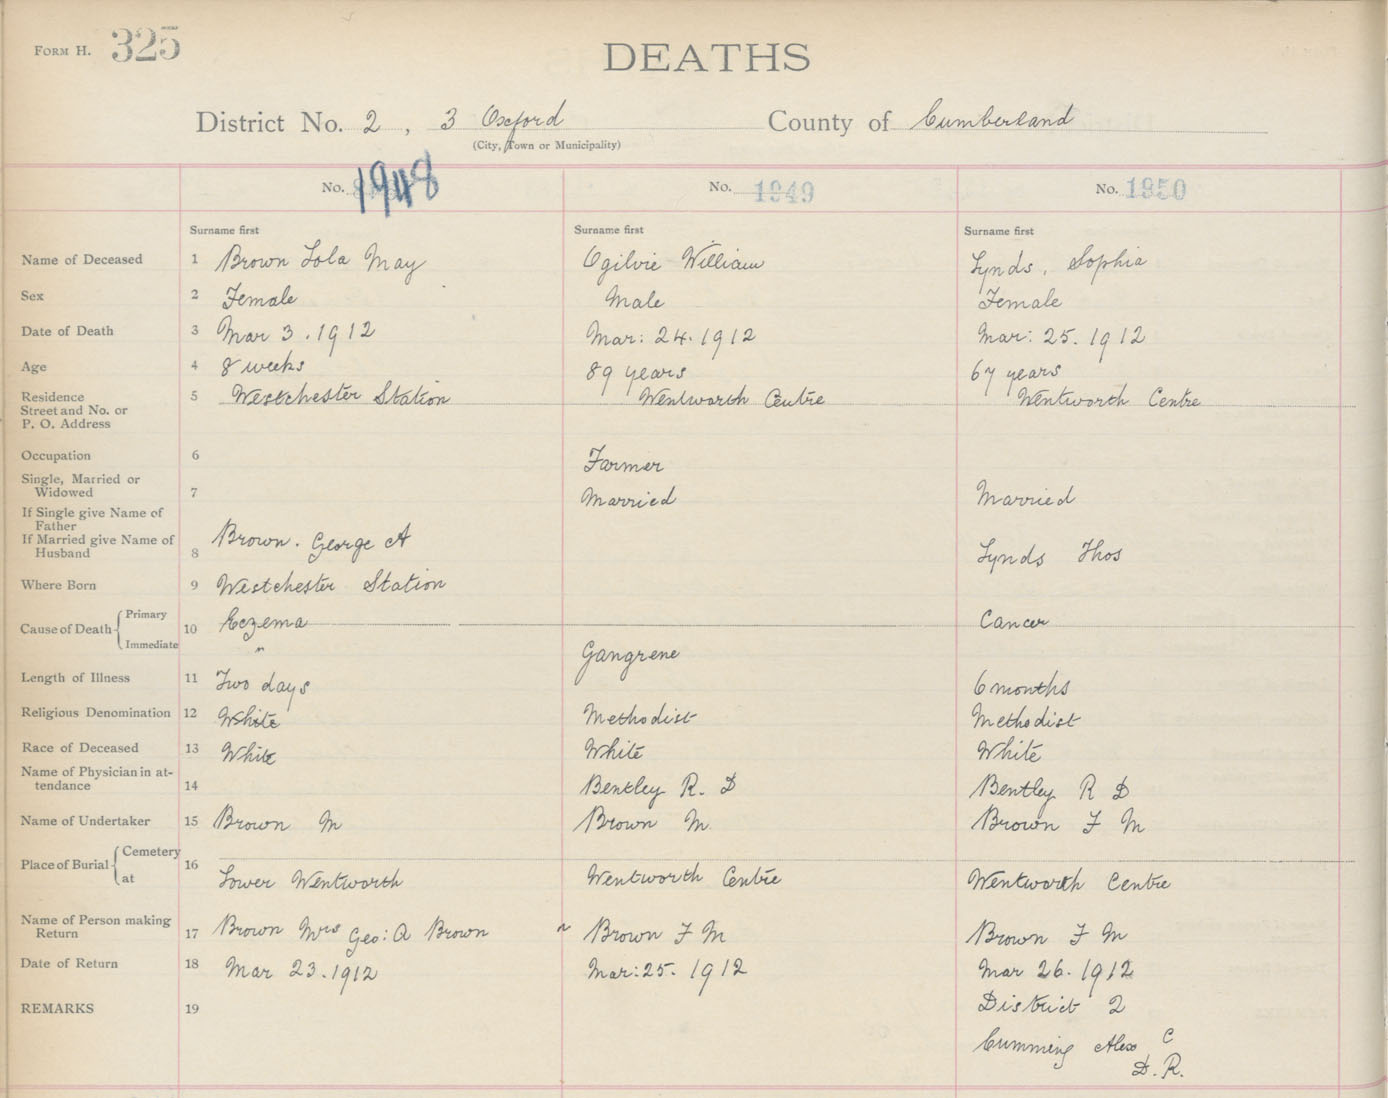 FORM H. 325
DEATHS
District No. 2, 3 Oxford County of Cumberland
(City, Town or Municipality)
No. 1948 No. 1949 No. 1950
Surname first Surname first Surname first
Name of Deceased 1 Brown Lola May Ogilvie William Lynds, Sophia
Sex 2 Female Male Female
Date of Death 3 Mar 3. 1912 Mar: 24. 1912 Mar: 25. 1912
Age 4 8 weeks 89 years 67 years
Residence 5 Westchester Station Wentworth Centre Wentworth Centre
Street and No. or
P. O. Address
Occupation 6 Farmer
Single, Married or
Widowed 7 Married Married
If Single give Name of
Father
If Married give Name of
Husband 8 Brown. George A Lynds Thos
Where Born 9 Westchester Station
Cause of Death 10 Primary Eczema Cancer
Immediate " Gangrene
Length of Illness 11 Two days 6 months
Religious Denomination 12 White Methodist Methodist
Race of Deceased 13 White White White
Name of Physician in at-
tendance 14 Bentley R. D Bentley R D
Name of Undertaker 15 Brown M Brown M Brown F M
Place of Burial 16 Cemetery
at Lower Wentworth Wentworth Centre Wentworth Centre
Name of Person making
Return 17 Brown Mrs Geo: A Brown " Brown F M Brown F M
Date of Return 18 Mar 23. 1912 Mar: 25. 1912 Mar 26. 1912
REMARKS 19 District 2
Cumming Alex C
D. R.